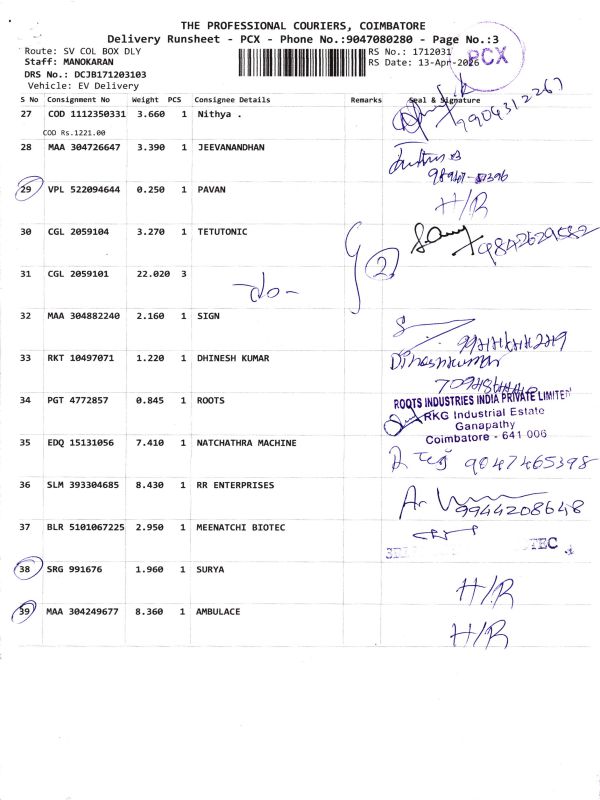 THE PROFESSIONAL COURIERS, COIMBATORE
Delivery Runsheet - PCX - Phone No.:9047080280 - Page No.:3
Route: SV COL BOX DLY
RS No.: 1712031
Staff: MANOKARAN
RS Date: 13-Apr-2026
PCX
DRS No.: DCJB171203103
Vehicle: EV Delivery
S No Consignment No Weight PCS Consignee Details Remarks Seal & Signature
27 COD 1112350331 3.660 1 Nithya .
COD Rs.1221.00
9904312267
28 MAA 304726647 3.390 1 JEEVANANDHAN
29 VPL 522094644 0.250 1 PAVAN H/R
30 CGL 2059104 3.270 1 TETUTONIC
2
31 CGL 2059101 22.020 3
-do-
32 MAA 304882240 2.160 1 SIGN
33 RKT 10497071 1.220 1 DHINESH KUMAR Dineshkumar
34 PGT 4772857 0.845 1 ROOTS
ROOTS INDUSTRIES INDIA PRIVATE LIMITED
RKG Industrial Estate
Ganapathy
Coimbatore - 641 006
35 EDQ 15131056 7.410 1 NATCHATHRA MACHINE
9047465398
36 SLM 393304685 8.430 1 RR ENTERPRISES
9944208648
37 BLR 5101067225 2.950 1 MEENATCHI BIOTEC
38 SRG 991676 1.960 1 SURYA H/R
39 MAA 304249677 8.360 1 AMBULACE H/R